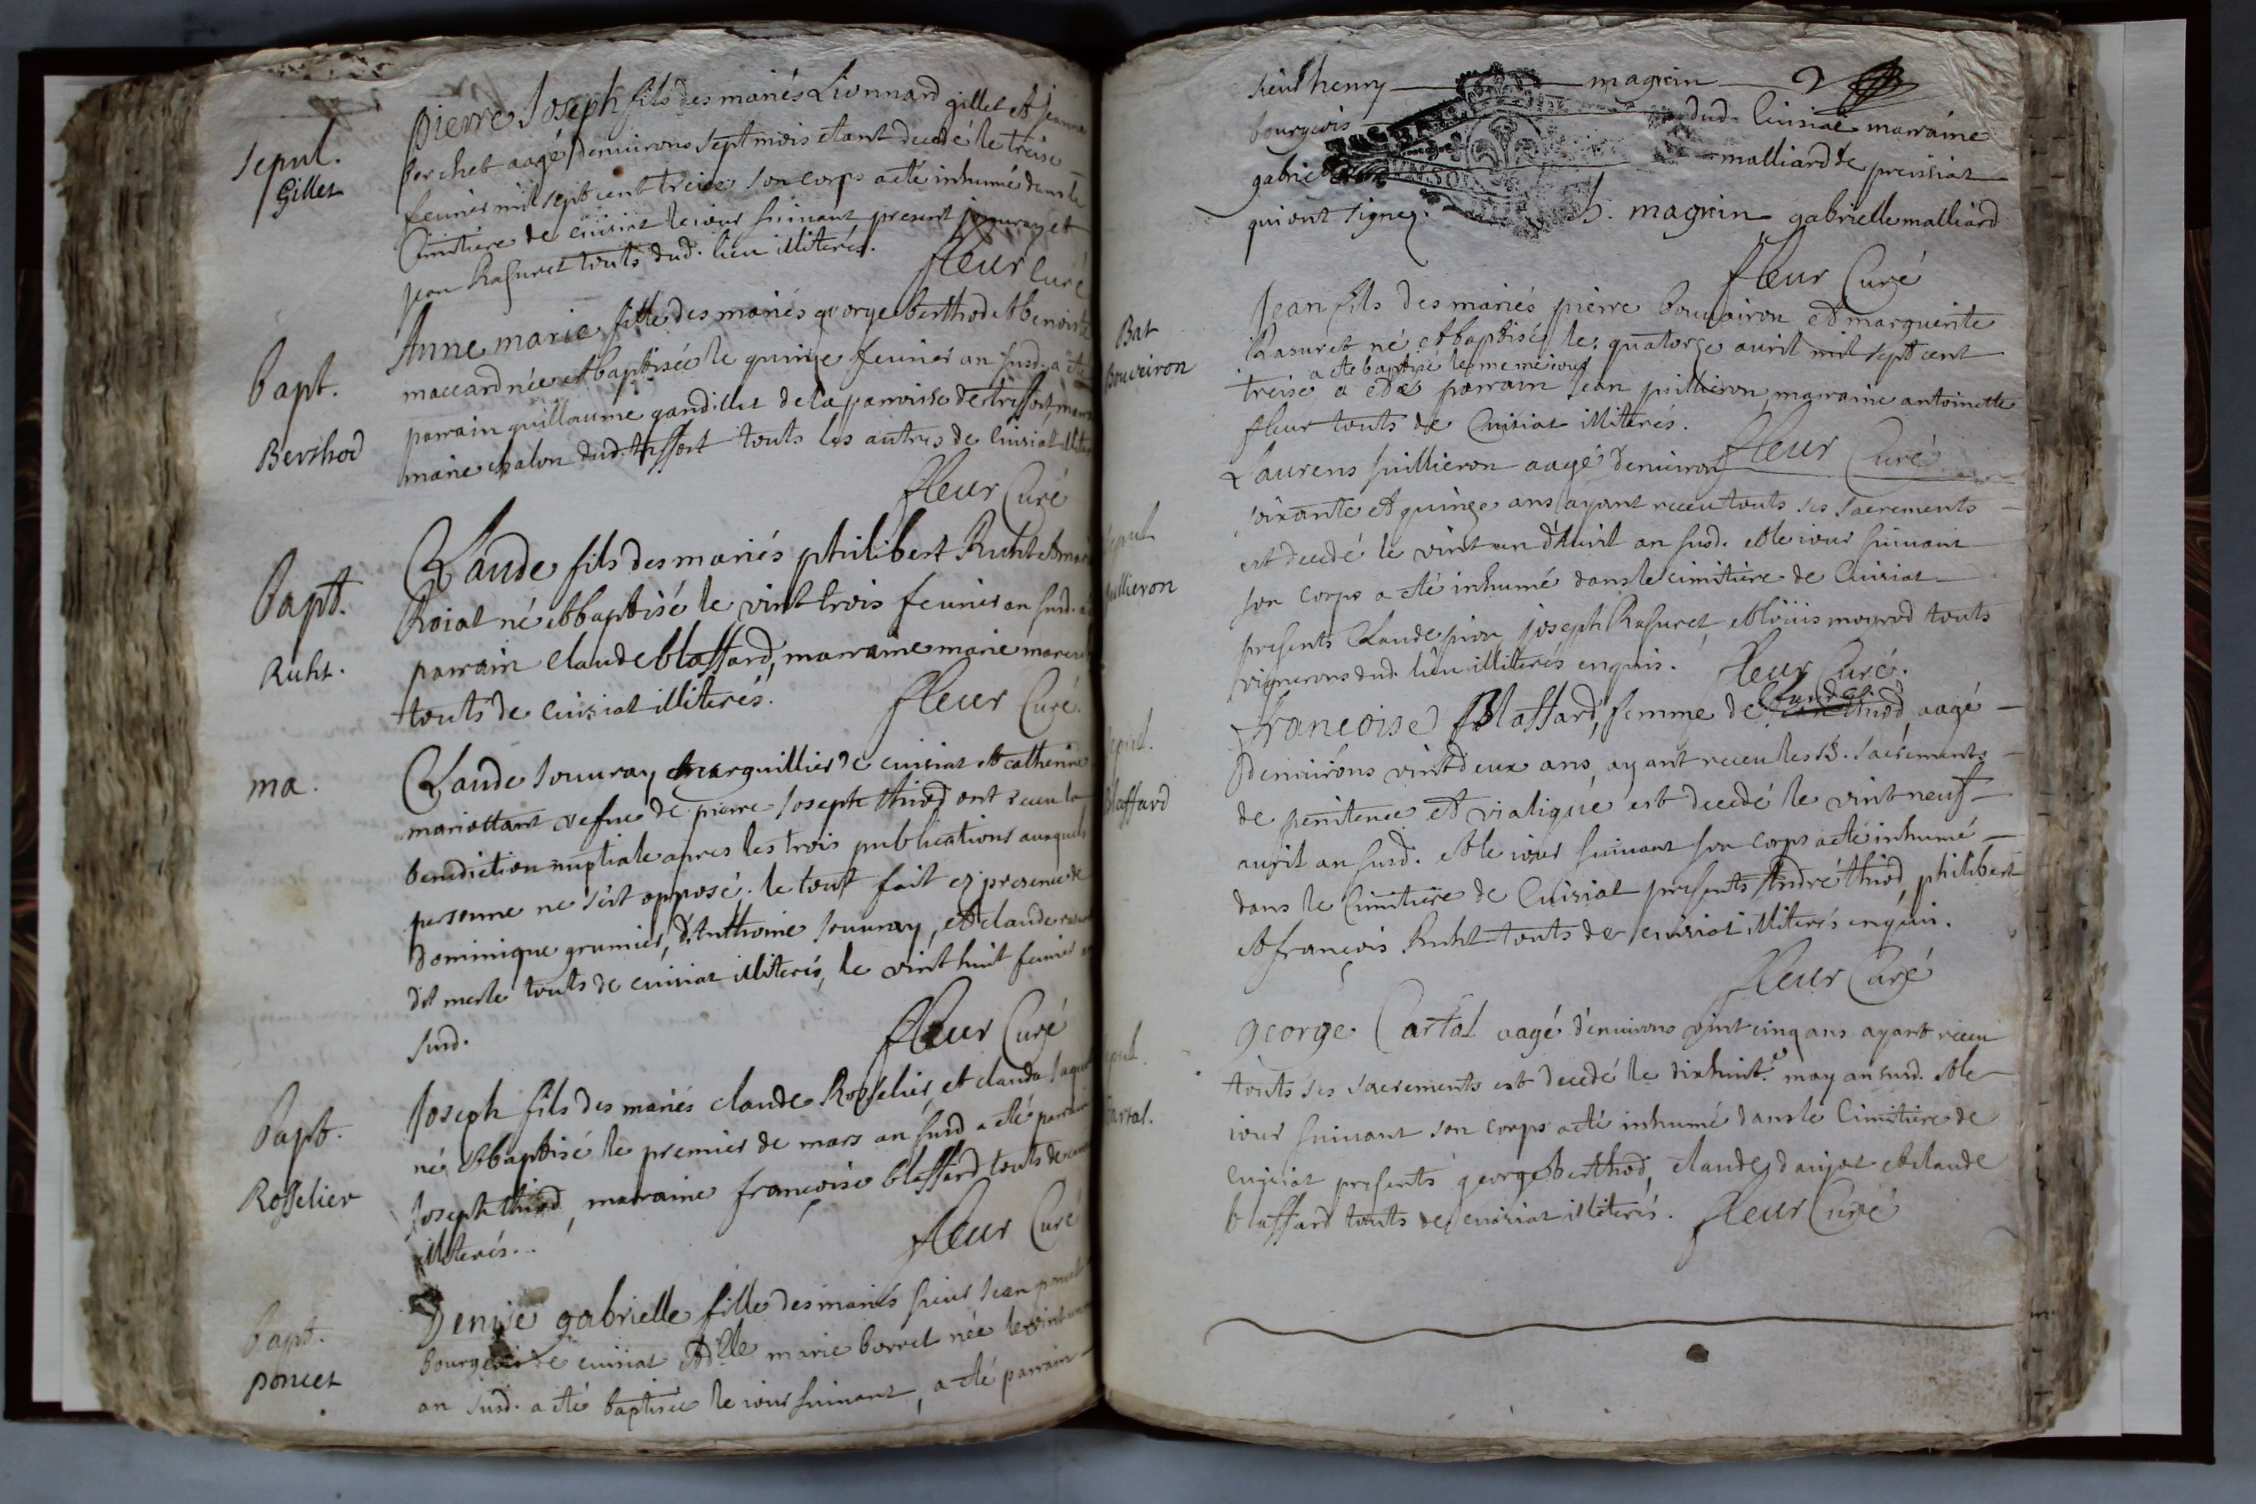 sepul.
Gillet
pierre Joseph fils des mariés Lionnard gillet et Jeanne
perchet aagé denuirons sept mois etant decedé le treise
feurier mil sept cent treise son corps a eté inhumé dans le
Cimitiere de cuisiat le iour suiuant present et
jean Rasuret touts dud. lieu illiterés.
fleur curé
bapt.
Berthod
Anne marie fille des mariés george berthod et benoiste
maccard née et baptisée le quinze feurier an susd. a eté
parrain guillaume gandillet de la parroisse de treffort, marr
marie chalon dud. treffort touts les autres de cuisiat illit
fleur Curé
bapt.
Ruht.
Claude fils des mariés philibert Ruht et marie
Roiat né et baptisé le vint trois feurier an susd. a
parrain claude blaffard, marraine marie
touts de cuisiat illiterés.
fleur Curé.
ma.
Claude souuray marguillier de cuisiat et catherine
mariottant vefue de pierre Joseph thiod ont receu la
benediction nuptiale apres les trois publications ausquels
personne ne s'est opposé. le tout fait ez presence de
Dominique grumier, d'Anthoine souuray, et claude
dit merle touts de cuisiat illiterés, le vint huit feurier an
susd.
fleur Curé
bapt.
Rosselier
Joseph fils des mariés claude Rosselier, et clauda
né et baptisé le premier de mars an susd a eté parrain
Joseph thiod, marraine françoise blaffard touts de
illiterés.
fleur Curé
bapt.
poncet
Denise gabrielle fille des mariés sieur Jean poncet
bourgeois de cuisiat et dlle marie borret née le vint
an susd. a eté baptisée le iour suiuant, a eté parrain
sieur henry magnin
bourgeois dud. Cuisiat marraine
gabrielle malliard de preissiat
qui ont signez. h. magnin gabrielle malliard
fleur Curé
Bat
Bouveiron
Jean fils des mariés pierre bouvairon et marguerite
Rasuret né et baptisé le quatorze auril mil sept cent
a eté baptisé le meme iour
treise a eté parrain jean puillieron marraine antoinette
fleur touts de Cuisiat illiterés.
fleur Curé
sepul
puillieron
Laurens puillieron aagé denuiron
soixante et quinze ans ayant receu touts ses sacrements
est decedé le vint un d'auril an susd. et le iour suiuant
son corps a eté inhumé dans le cimitiere de Cuisiat
presents Claude pion, joseph Rasuret, et loüis moyrod touts
vignerons dud. lieu illiterés enquis.
fleur Curé.
sepul.
blaffard
françoise Blaffard, femme de Claude thiod, aagé
denuirons vint deux ans, ayant receu les SS. sacrements
de penitence et viatique est decedé le vint neuf
auril an susd. et le iour suiuant son corps a eté inhumé
dans le Cimitiere de Cuisiat presents André thiod, philibert
et françois Ruht touts de cuisiat illiterés enquis.
fleur Curé
sepul.
Cartal.
george Cartal aagé d'enuirons vint cinq ans ayant receu
touts ses sacrements est decedé le dixhuit.e may an susd. et le
iour suiuant son corps a eté inhumé dans le Cimitiere de
cuisiat presents george berthod, claude danjot et claude
blaffard touts de cuisiat illiterés.
fleur Curé